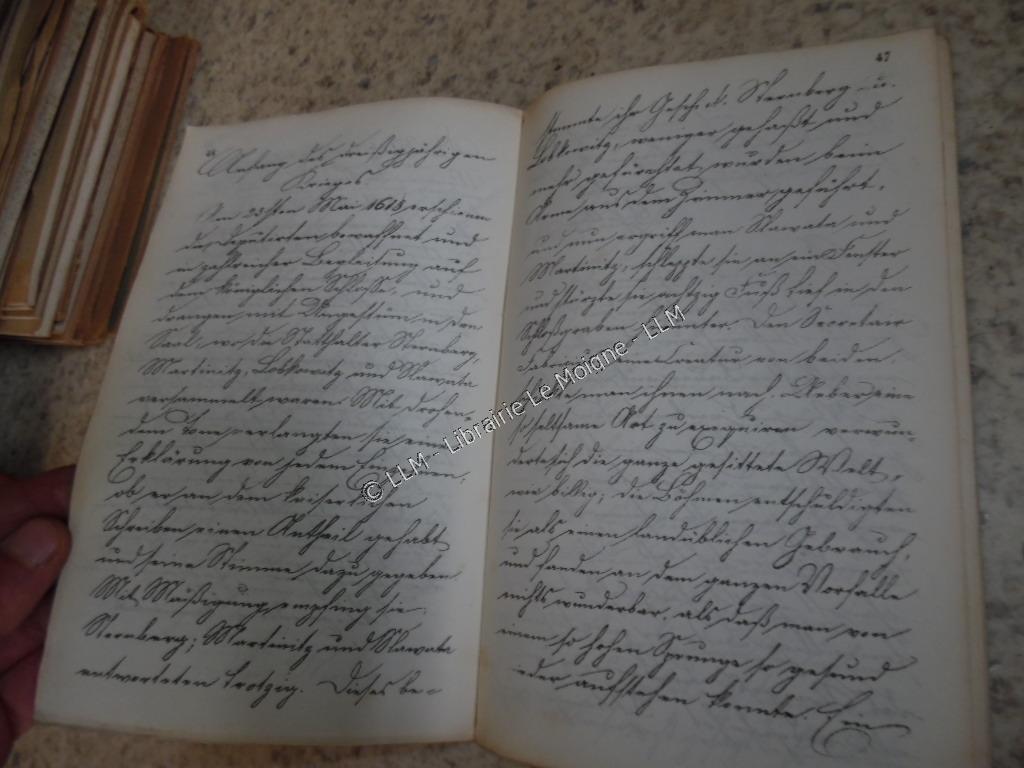 Anfang des dreißigjährigen
Krieges
Am 23sten Mai 1618 erschienen
die Deputirten bewaffnet und
in zahlreicher Begleitung auf
dem königlichen Schlosse, und
drangen mit Ungestüm in den
Saal, wo die Statthalter Sternberg,
Martinitz, Lobkowitz und Slawata
versammelt waren. Mit drohen-
dem Tone verlangten sie eine
Erklärung von jedem Einzelnen,
ob er an dem kaiserlichen
Schreiben einen Antheil gehabt,
und seine Stimme dazu gegeben.
Mit Mäßigung empfing sie
Sternberg; Martinitz und Slawata
antworteten trotzig. Dieses be-
47
stimmte ihr Geschick. Sternberg u.
Lobkowitz, weniger gehaßt und
mehr gefürchtet, wurden beim
Arme aus dem Zimmer geführt,
und nun ergriff man Slawata und
Martinitz, schleppte sie an ein Fenster
und stürzte sie achtzig Fuß tief in den
Schloßgraben hinunter. Den Secretair
Fabricius, eine Creatur von beiden
schickte man ihnen nach. Ueber eine
so seltsame Art zu exequiren verwun-
derte sich die ganze gesittete Welt,
wie billig; die Böhmen entschuldigten
sie als einen landüblichen Gebrauch,
und fanden an dem ganzen Vorfalle
nichts wunderbar, als daß man von
einem so hohen Sprunge so gesund
wieder aufstehen konnte. Ein
© LLM - Librairie Le Moigne - LLM